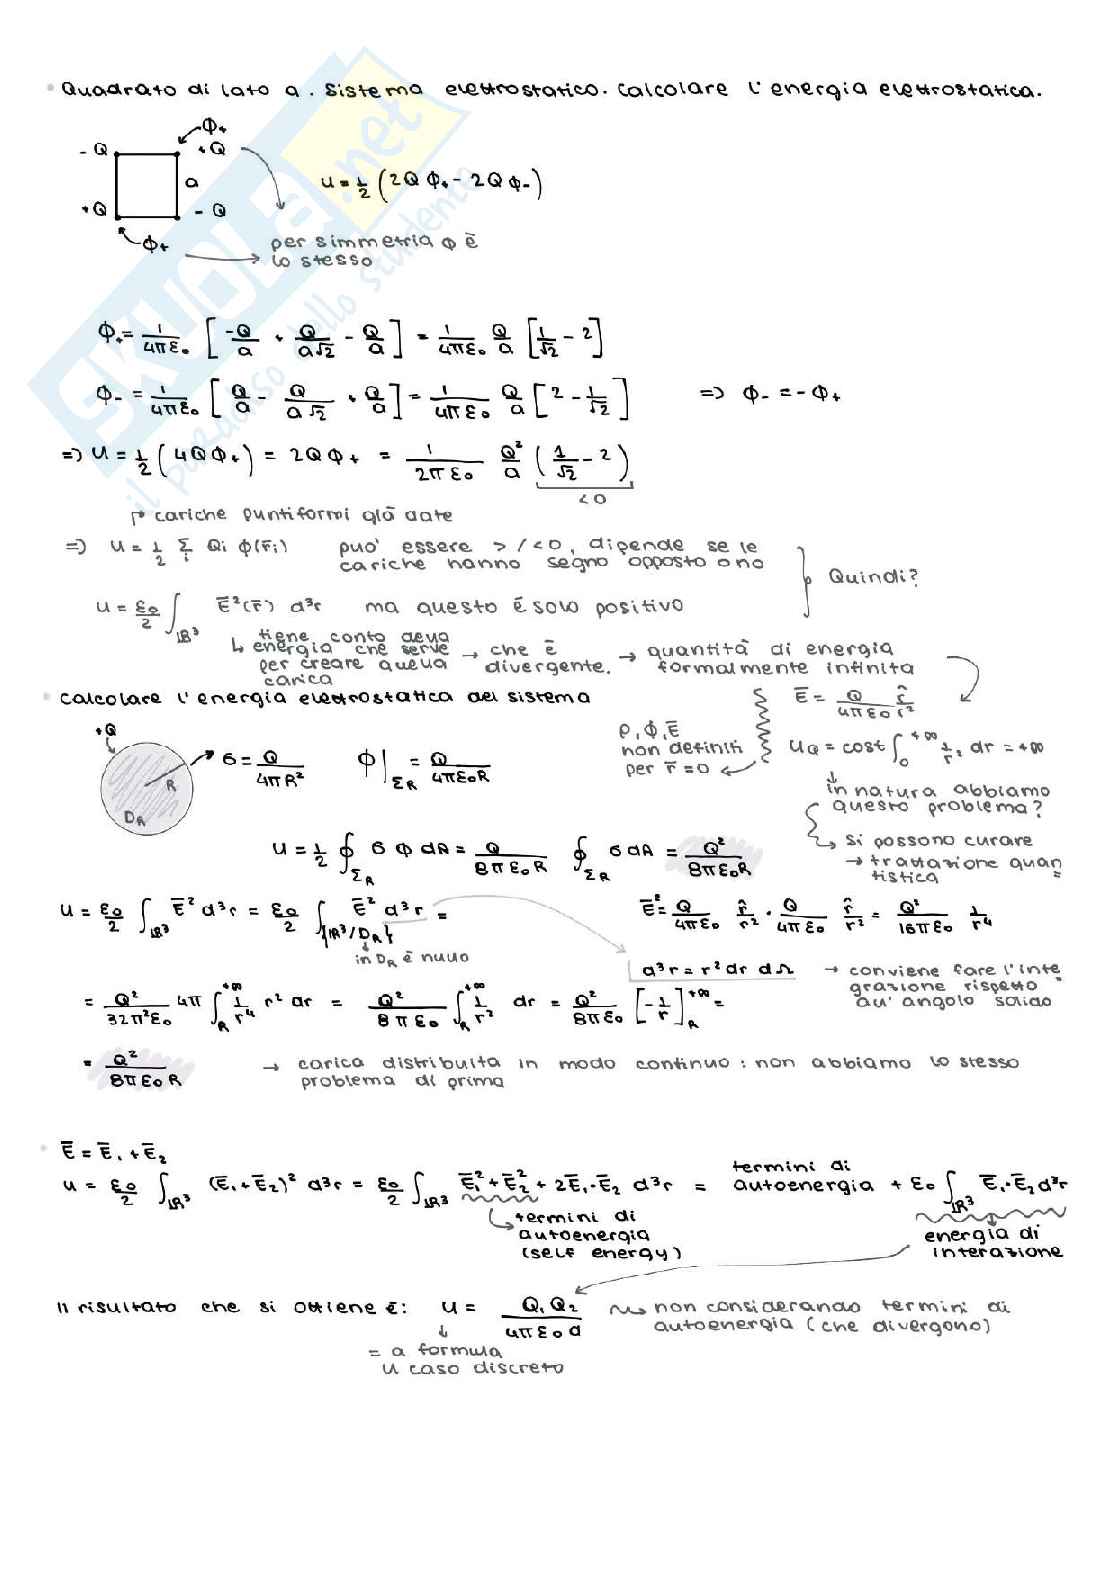 • Quadrato di lato a. Sistema elettrostatico. Calcolare l'energia elettrostatica.
Φ₊
- Q
+ Q
a
+ Q
- Q
Φ₊
U = 1/2 (2Q Φ₊ - 2Q Φ₋)
per simmetria Φ è
lo stesso
Φ₊ = 1/4πε₀ [ -Q/a + Q/a√2 - Q/a ] = 1/4πε₀ Q/a [ 1/√2 - 2 ]
Φ₋ = 1/4πε₀ [ Q/a - Q/a√2 + Q/a ] = 1/4πε₀ Q/a [ 2 - 1/√2 ] => Φ₋ = -Φ₊
=> U = 1/2 (4QΦ₊) = 2QΦ₊ = 1/2πε₀ Q²/a (1/√2 - 2)
< 0
cariche puntiformi già date
=> U = 1/2 Σᵢ Qᵢ Φ(r̄ᵢ) può essere > / < 0, dipende se le
cariche hanno segno opposto o no
Quindi?
U = ε₀/2 ∫_ℝ³ Ē²(r̄) d³r ma questo è solo positivo
↳ tiene conto della
energia che serve
per creare quella
carica
→ che è
divergente.
→ quantità di energia
formalmente infinita
Ē = Q/4πε₀ r̂/r²
ρ, Φ, Ē
non definiti
per r̄ = 0
U_Q = cost ∫₀^+∞ 1/r² dr = +∞
in natura abbiamo
questo problema?
si possono curare
→ trattazione quan
tistica =
• Calcolare l'energia elettrostatica del sistema
+Q
R
D_R
σ = Q/4πR²
Φ|_Σ_R = Q/4πε₀R
U = 1/2 ∮_Σ_R σ Φ dA = Q/8πε₀R ∮_Σ_R σ dA = Q²/8πε₀R
U = ε₀/2 ∫_ℝ³ Ē² d³r = ε₀/2 ∫_{ℝ³/D_R} Ē² d³r =
in D_R è nullo
Ē² = Q/4πε₀ r̂/r² · Q/4πε₀ r̂/r² = Q²/16πε₀ 1/r⁴
d³r = r² dr dΩ → conviene fare l'inte
grazione rispetto =
all'angolo solido
= Q²/32π²ε₀ 4π ∫_R^+∞ 1/r⁴ r² dr = Q²/8πε₀ ∫_R^+∞ 1/r² dr = Q²/8πε₀ [ -1/r ]_R^+∞ =
= Q²/8πε₀R → carica distribuita in modo continuo: non abbiamo lo stesso
problema di prima
• Ē = Ē₁ + Ē₂
U = ε₀/2 ∫_ℝ³ (Ē₁ + Ē₂)² d³r = ε₀/2 ∫_ℝ³ Ē₁² + Ē₂² + 2Ē₁·Ē₂ d³r = termini di autoenergia + ε₀ ∫_ℝ³ Ē₁·Ē₂ d³r
termini di
autoenergia
(self energy)
energia di
interazione
Il risultato che si ottiene è: U = Q₁Q₂/4πε₀d non considerando termini di
autoenergia (che divergono)
= a formula
U caso discreto
SKUOLA.net
il paradiso dello studente